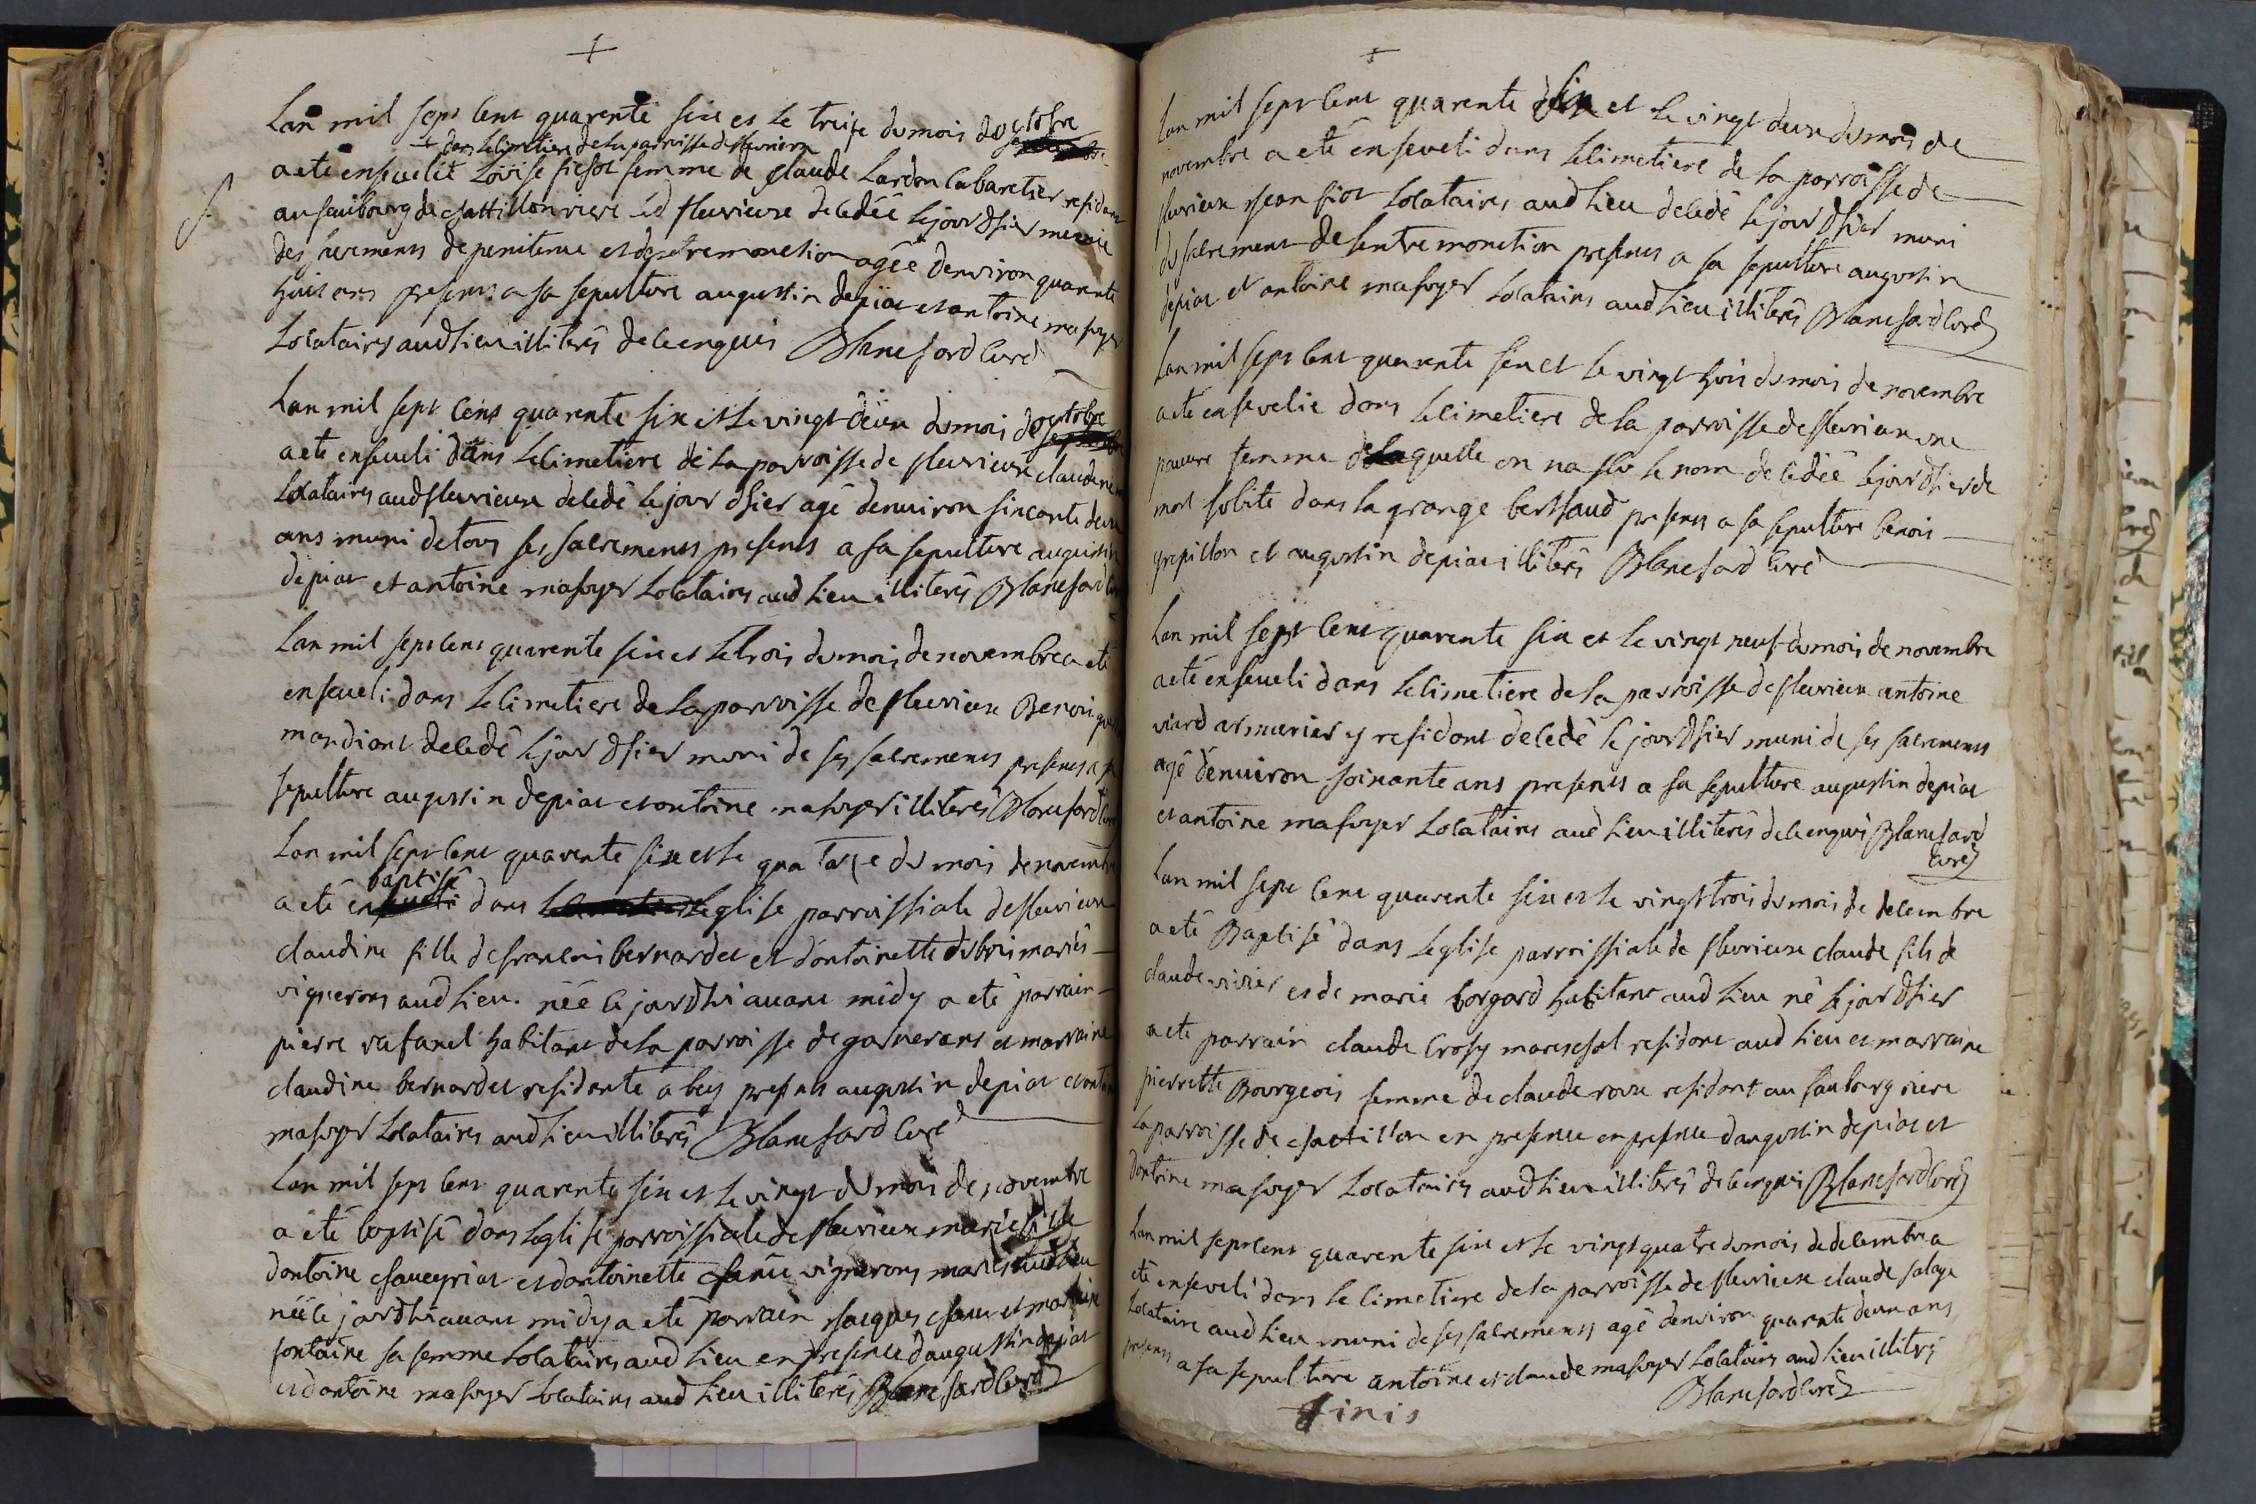 Lan mil sept cent quarente six et le treise du mois doctobre
dans le cimetiere de la parroisse de fleurieux
a eté ensevelie Loüise fichot femme de claude Lardon cabaretier residant
au fauibourg de chattillon riere led fleurieux decedéé le jour dhier munie
des sacrements de penitence et dextremonction agéé denviron quarente
huit ans presents a sa sepulture augustin depiat et antoine masoyer
Locataires aud lieu illiterés de ce enquis Blanchard curé
Lan mil sept cent quarente six et le vingt deux du mois doctobre
a eté enseveli dans le cimetiere de la parroisse de fleurieux claude
Locataires aud fleurieux decedé le jour dhier agé denviron sincante deux
ans muni de tous ses sacrements presents a sa sepulture augustin
depiat et antoine masoyer Locataires aud lieu illiterés Blanchard
Lan mil sept cent quarente six et le trois du mois de novembre a eté
enseveli dans le cimetiere de la parroisse de fleurieux Benoi
mandiant decedé le jour dhier muni de ses sacrements presents a sa
sepulture augustin depiat et antoine masoyer illiterés Blanchard
Lan mil sept cent quarente six et le quatorse du mois de novembre
baptisé
a eté dans leglise parroissiale de fleurieux
claudine fille de francois bernardet et dantoinette dubrui mariés
vignerons aud lieu. néé le jourdhui avant midy a eté parrain
pierre rafanel habitant de la parroisse de garnerans et marraine
claudine bernardet residente a bey presents augustin depiat et antoine
masoyer Locataires aud lieu illiterés Blanchard curé
Lan mil sept cent quarente six et le vingt du mois de novembre
a eté baptisé dans leglise parroissiale de fleurieux marie fille
dantoine chaveyriat et dantoinette vignerons mariés aud lieu
néé le jourdhui avant midy a eté parrain Jacques et marraine
fontaine sa femme Locataires aud lieu en presence daugustin depiat
et dantoine masoyer locataires aud lieu illiterés Blanchard curé
Lan mil sept cent quarente six et le vingt deux du mois de
novembre a eté enseveli dans le cimetiere de la parroisse de
fleurieux Jean fiot Locataires aud lieu decedé le jour dhier muni
du sacrement de lentremonction presents a sa sepulture augustin
depiat et antoine masoyer Locataires aud lieu illiterés Blanchard curé
Lan mil sept cent quarente six et le vingt huis du mois de novembre
a eté ensevelie dans le cimetiere de la parroisse de fleurieux une
pauvre femme de laquelle on na sceu le nom decedéé le jour dhier de
mort subite dans la grange berthaud presents a sa sepulture benois
grepillon et augustin depiat illiterés Blanchard curé
Lan mil sept cent quarente six et le vingt neuf du mois de novembre
a eté enseveli dans le cimetiere de la parroisse de fleurieux antoine
viard armurier y residant decedé le jour dhier muni de ses sacrements
agé denviron soixante ans presents a sa sepulture augustin depiat
et antoine masoyer Locataires aud lieu illiterés de ce enquis Blanchard
curé
Lan mil sept cent quarente six et le vingt trois du mois de decembre
a eté Baptisé dans leglise parroissiale de fleurieux claude fils de
claude vivier et de marie borgard habitant aud lieu né le jour dhier
a eté parrain claude Crosy marechal residant aud lieu et marraine
pierrette Bourgeois femme de claude roux residant au faubourg riere
la parroisse de chattillon en presence en presence daugustin depiat et
dantoine masoyer Locataires aud lieu illiterés de ce enquis Blanchard curé
Lan mil sept cent quarente six et le vingt quatre du mois de decembre a
eté enseveli dans le cimetiere de la parroisse de fleurieux claude salage
Locataire aud lieu muni de ses sacrements agé denviron quarente deux ans
presents a sa sepulture antoine et claude masoyer Locataires aud lieu illiterés
Blanchard curé
finis